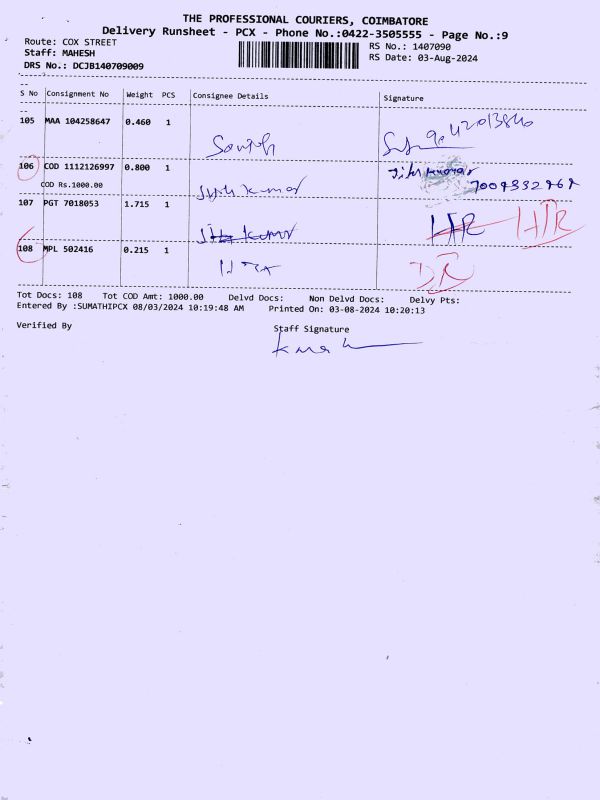 THE PROFESSIONAL COURIERS, COIMBATORE
Delivery Runsheet - PCX - Phone No.:0422-3505555 - Page No.:9
Route: COX STREET
RS No.: 1407090
Staff: MAHESH
RS Date: 03-Aug-2024
DRS No.: DCJB140709009
S No Consignment No Weight PCS Consignee Details Signature
105 MAA 104258647 0.460 1
Santosh
106 COD 1112126997 0.800 1
COD Rs.1000.00
Kumar
107 PGT 7018053 1.715 1
Kumar
HTR
108 MPL 502416 0.215 1
DR
Tot Docs: 108 Tot COD Amt: 1000.00 Delvd Docs: Non Delvd Docs: Delvy Pts:
Entered By :SUMATHIPCX 08/03/2024 10:19:48 AM Printed On: 03-08-2024 10:20:13
Verified By Staff Signature